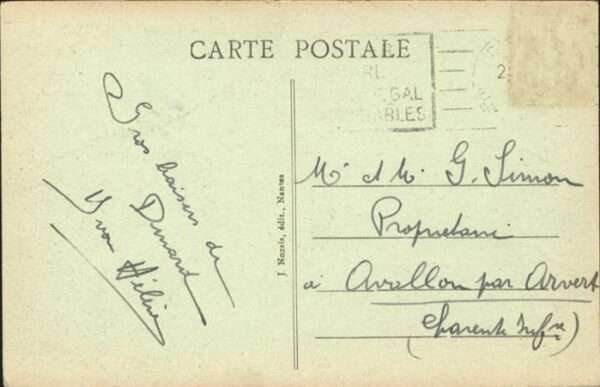 CARTE POSTALE
GAL
ABLES
2
Gros baisers de
Dinard
Yvon Hélène
J. Nozais, édit., Nantes
Mr et Me G. Simon
Propriétaire
à Avallon par Arvert
(Charente Infre)